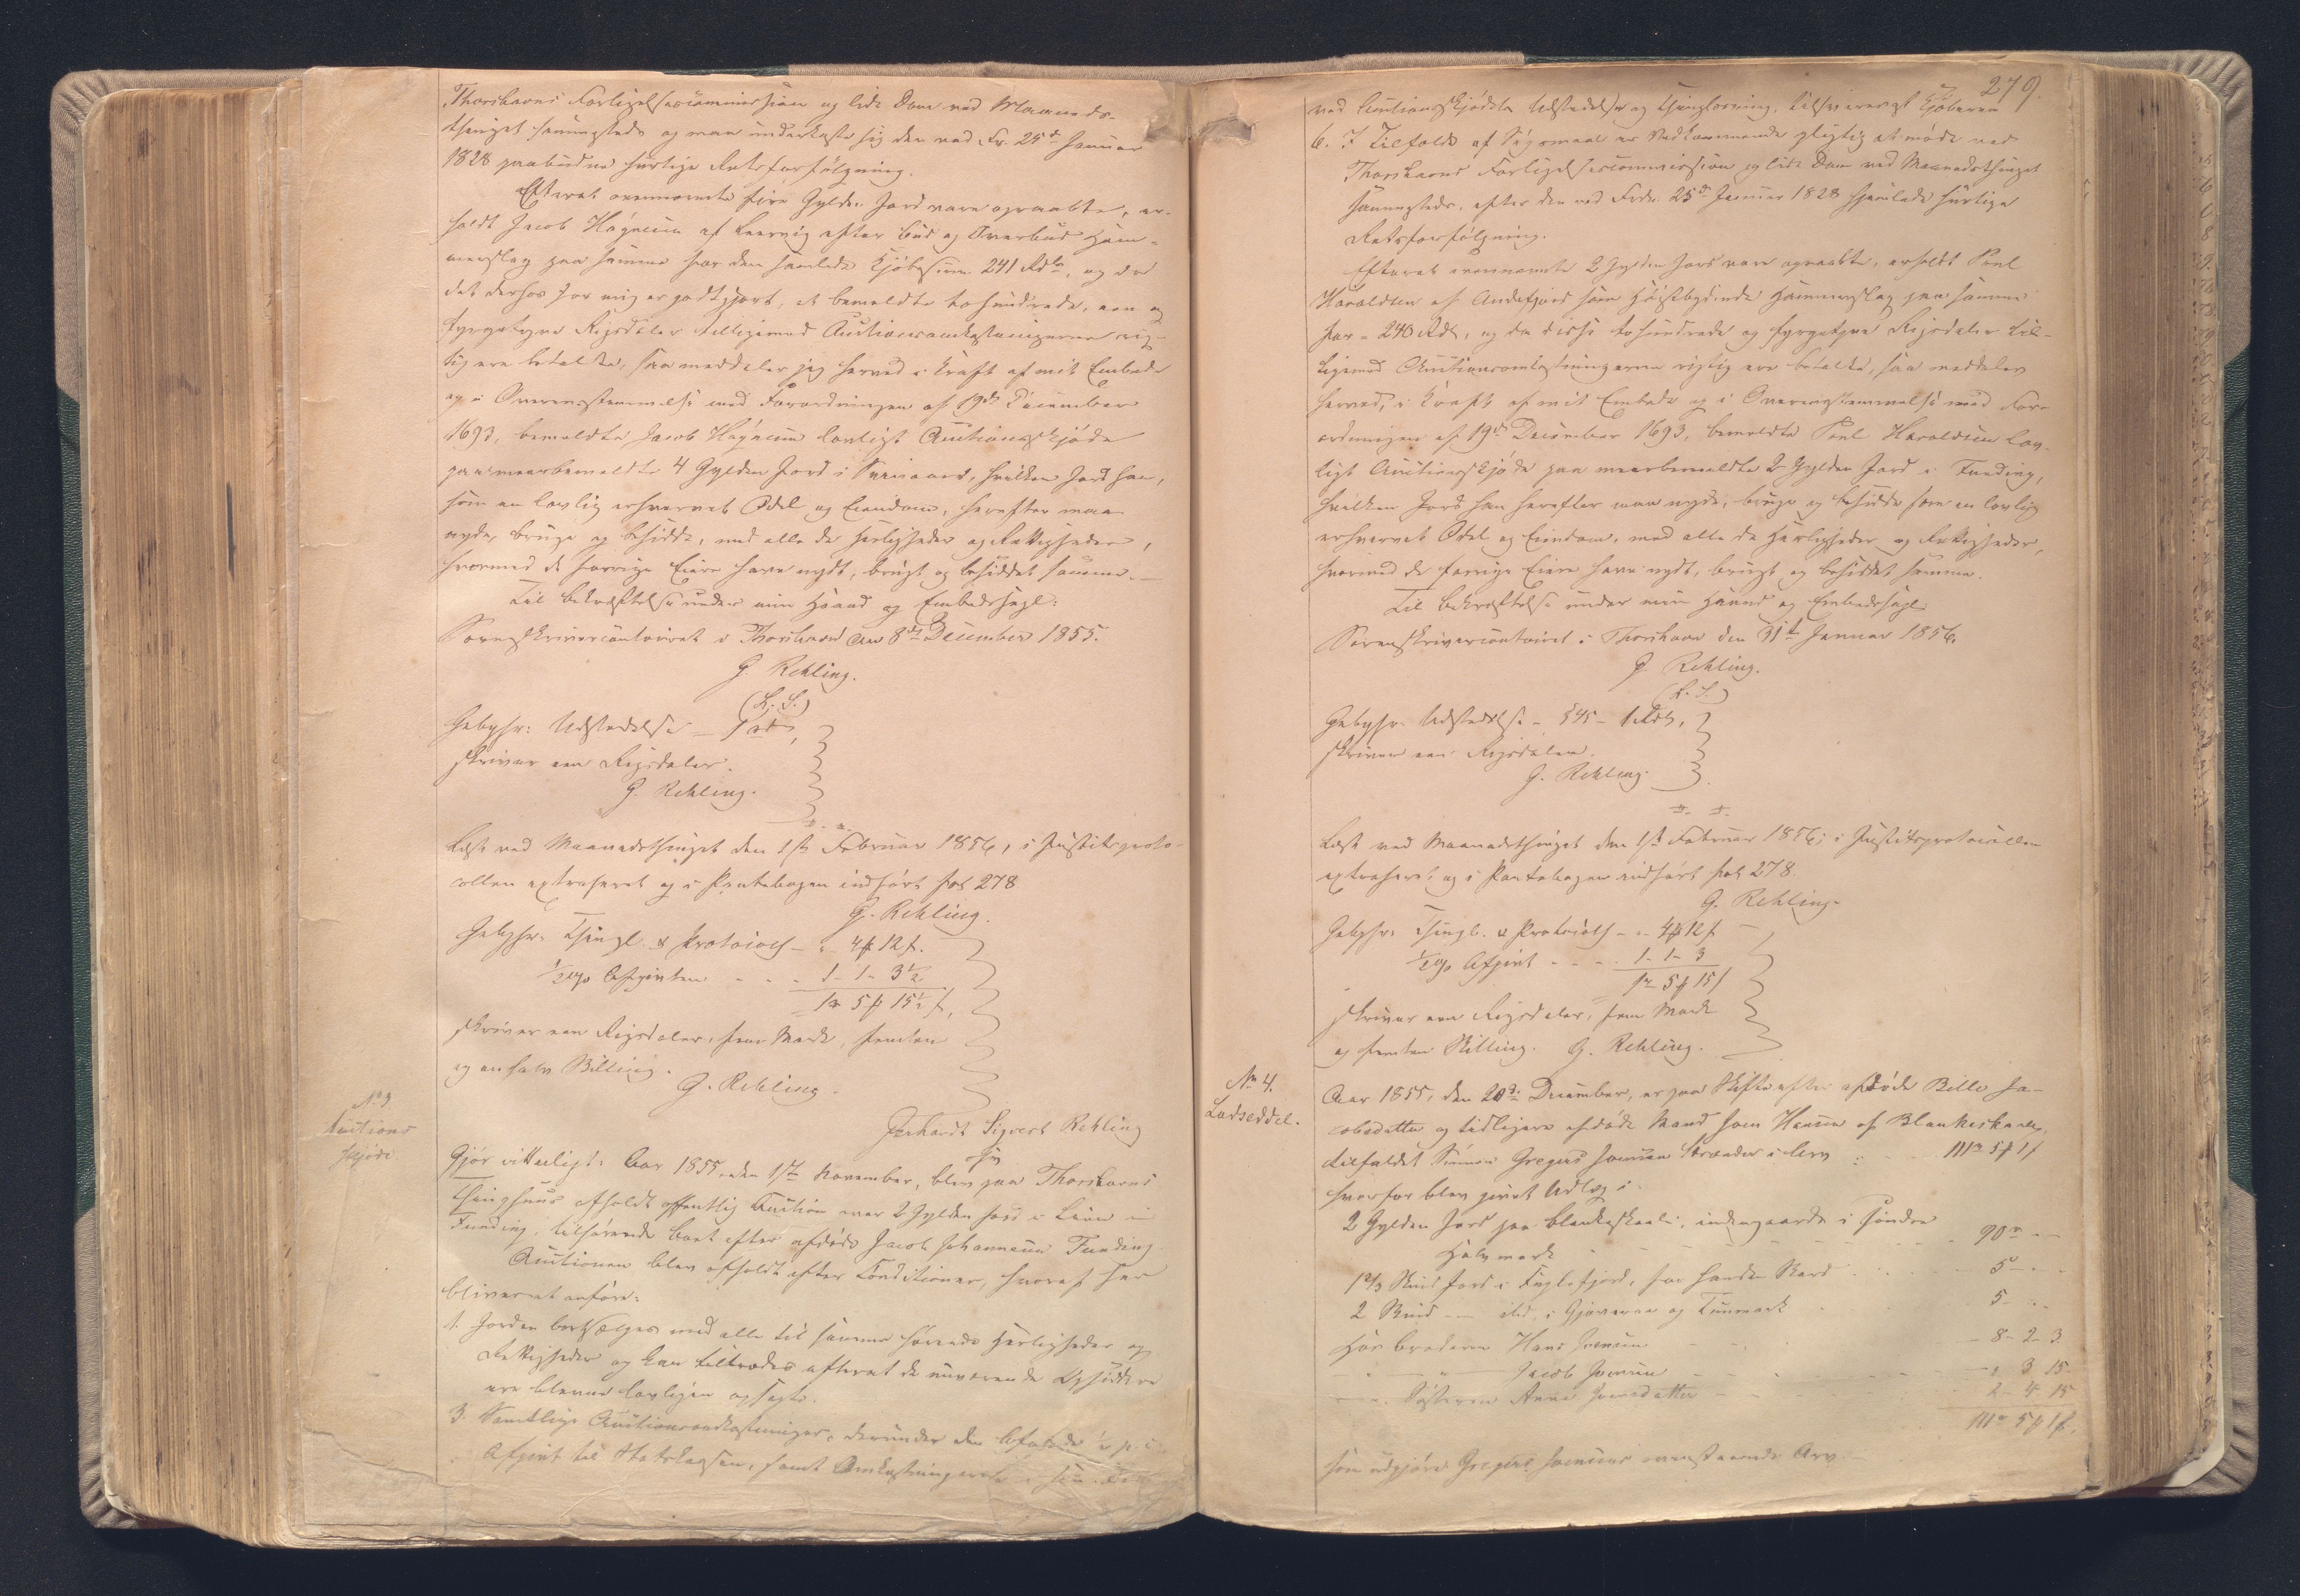 Thorshavns Forligelsescommission og lide Dom ved Maaneds-
thinget sammesteds og maa underkaste sig den ved Fr. 25de Januar
1828 paabudne hurtige Retsforfølgning.
Efterat ovennævnte fire Gylden Jord vare opraabte, er-
holdt Jacob Høgnesen af Leervig efter Bud og Overbud Ham-
merslag paa samme for den samlede Kjøbesum 241 Rdlr, og da
det derhos for mig er godtgjort, at bemeldte tohundrede, een og
fyrgetyve Rigsdaler tilligemed Auctionsomkostningerne rig-
tig ere betalte, saa meddeler jeg herved i Kraft af mit Embede
og i Overensstemmelse med Forordningen af 19de December
1693, bemeldte Jacob Høgnesen lovligt Auctionsskjøde
paa meerbemeldte 4 Gylden Jord i Svinaae, hvilken Jord han,
som en lovlig erhvervet Odel og Eiendom, herefter maa
nyde, bruge og besidde, med alle de Herligheder og Rettigheder,
hvormed de forrige Eiere have nydt, brugt og besiddet samme. —
Til Bekræftelse under min Haand og Embedssegl:
Sorenskrivercontoiret i Thorshavn den 8de December 1855.
G. Rehling.
(L. S.)
Gebyhr: Udstedelse — 1 rd,
skriver een Rigsdaler.
G. Rehling.
Læst ved Maanedsthinget den 1ste Februar 1856, i Justitsproto-
collen extraheret og i Pantebogen indført fol 278
G. Rehling.
Gebyhr: Thingl. & Protocoll — " 4 ƒ 12 ſ.
1/2 % Afgiften - - - 1 - 1 - 3 1/2
1 r 5 ƒ 15 1/2 ſ,
skriver een Rigsdaler, fem Mark, femten
og en halv Skilling.
G. Rehling.
No 3
Auctions
skjøde
Gerhardt Sigvert Rehling
Gjør vitterligt: Aar 1855, den 1ste November, blev paa Thorshavns
Thinghuus afholdt offentlig Auction over 2 Gylden Jord i
Funding, tilhørende Boet efter afdøde Jacob Johannesen Funding.
Auctionen blev afholdt efter Conditioner, hvoraf her
bliver at anføre:
1. Jorden bortsælges med alle til samme hørende Herligheder og
Rettigheder og kan tiltrædes efterat de nuværende Opsiddere
ere blevne lovligen opsagte.
3. Samtlige Auctionsomkostninger, derunder den befalede 1/2 p. c.
Afgivt til Statskassen, samt Omkostningerne
279.
ved Auctionsskjødets Udstedelse og Thinglæsning, tilsvares af Kjøberen
6. I Tilfælde af Søgsmaal er Vedkommende pligtig at møde ved
Thorshavns Forligelsescommission og lide Dom ved Maanedsthinget
sammesteds, efter den ved Frdn. 25de Januar 1828 hjemlede hurtige
Retsforfølgning.
Efterat ovennævnte 2 Gylden Jord vare opraabte, erholdt Poul
Haraldsen af Andefjord som Høistbydende Hammerslag paa samme
for 240 Rdlr, og da disse tohundrede og fyrgetyve Rigsdaler til-
ligemed Auctionsomkostningerne rigtig ere betalte, saa meddeles
herved, i Kraft af mit Embede og i Overensstemmelse med For-
ordningen af 19de December 1693, bemeldte Poul Haraldsen lov-
ligt Auctionsskjøde paa meerbemeldte 2 Gylden Jord i Funding,
hvilken Jord han herefter maa nyde, bruge og besidde som en lovlig
erhvervet Odel og Eiendom, med alle de Herligheder og Rettigheder,
hvormed de forrige Eiere have nydt, brugt og besiddet samme.
Til Bekræftelse under min Haand og Embedssegl
Sorenskrivercontoiret i Thorshavn den 31te Januar 1856.
G. Rehling.
(L. S.)
Gebyhr: Udstedelse — § 45 — 1 Rdlr,
skriver een Rigsdaler.
G. Rehling.
Læst ved Maanedsthinget den 1ste Februar 1856; i Justitsprotocollen
extraheret og i Pantebogen indført fol 278.
G. Rehling.
Gebyhr: Thingl. & Protocoll — " 4 ƒ 12 ſ
1/2 % Afgivt - - - 1 - 1 - 3
1 r 5 ƒ 15 ſ
skriver een Rigsdaler, fem Mark
og femten Skilling. G. Rehling.
No 4.
Lodseddel.
Aar 1855, den 20de December, er paa Skifte efter afdøde Bille Ja-
cobsdatter og tidligere afdøde Mand Joen Hansen af Blankeskaale,
tilfaldet Sønnen Gregers Joensen Strænder i Arv : - - 111 r 5 ƒ 1 ſ
hvorfor blev givet Udlæg i
2 Gylden Jord paa Blankeskaale, indengaards i søndre
Halvmark - - - 90 r - -
1 2/3 Skind Jord i Fuglefjord, - - - 5 - - -
2 Skind — ibd. i Gjøveraa og Tunmark - - 5 - - -
Hos Broderen Hans Joensen - - - 8 - 2 - 3
— " — Jacob Joensen - - - 3 15
— Søsteren Anne Joensdatter - - - 2 - 4 15
111 r 5 ƒ 1 ſ.
som udgjøre Gregers Joensens ovenstaaende Arv.